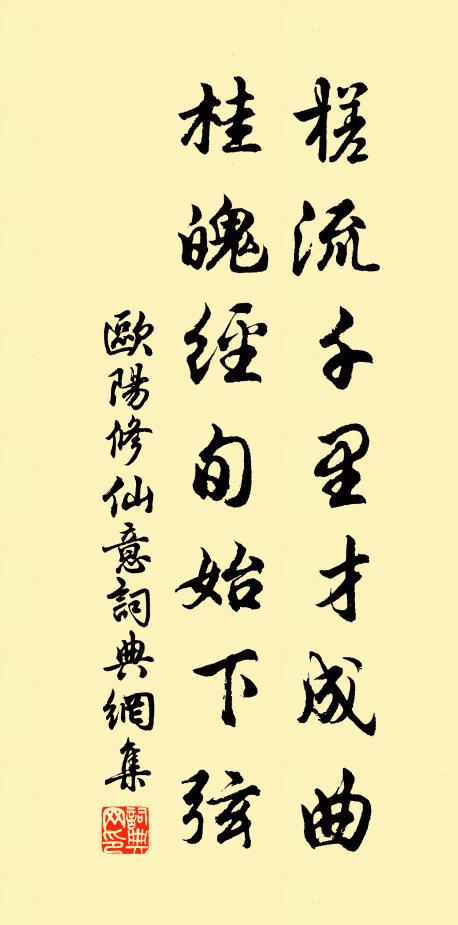 槎流千里才成曲
桂魄經旬始下弦
歐陽修仙意詞典網集
詞典网印